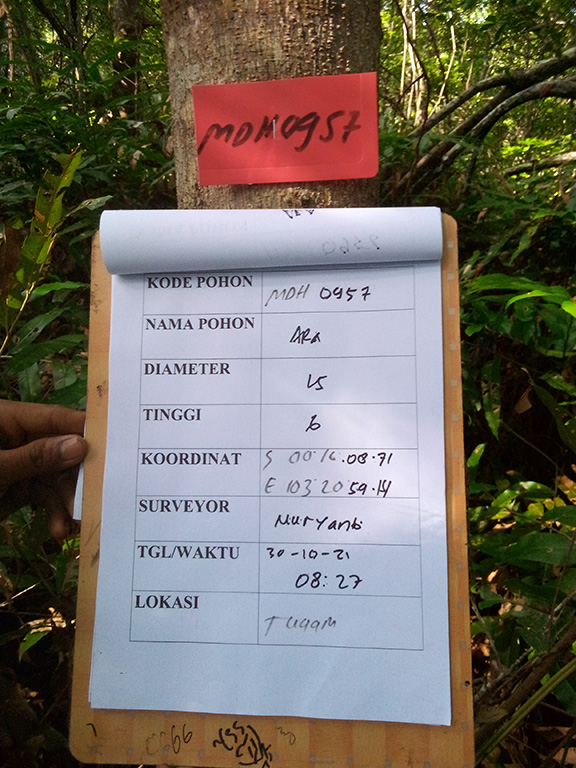 MDH0957
KODE POHON MDH 0957
NAMA POHON ARA
DIAMETER 15
TINGGI 6
KOORDINAT S 00.16.08.71
E 103.20 59.14
SURVEYOR Muryanti
TGL/WAKTU 30-10-21
08:27
LOKASI
0666